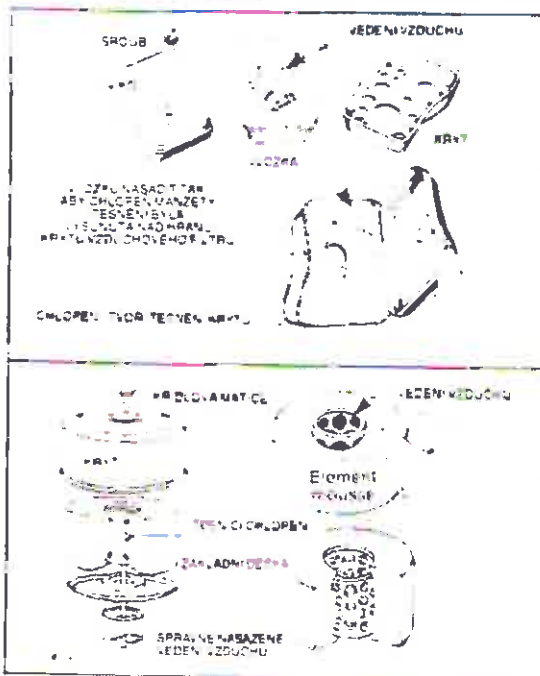 ŠROUB
VEDENI VZDUCHU
KRYT
VLOZKA
KRYT
VLOZKU NASADIT TAK
ABY CHLOPEN MANZETY
TESNENI BYLA
VYSUNUTA NAD HRANU
KRYTU VZDUCHOVEHO FILTRU
CHLOPEN TVORI TESNENI KRYTU
KRIDLOVA MATICE
VEDENI VZDUCHU
KRYT
Element
mousse
TESNICI CHLOPEN
ZAKLADNI DESKA
SPRAVNE NASAZENE
VEDENI VZDUCHU